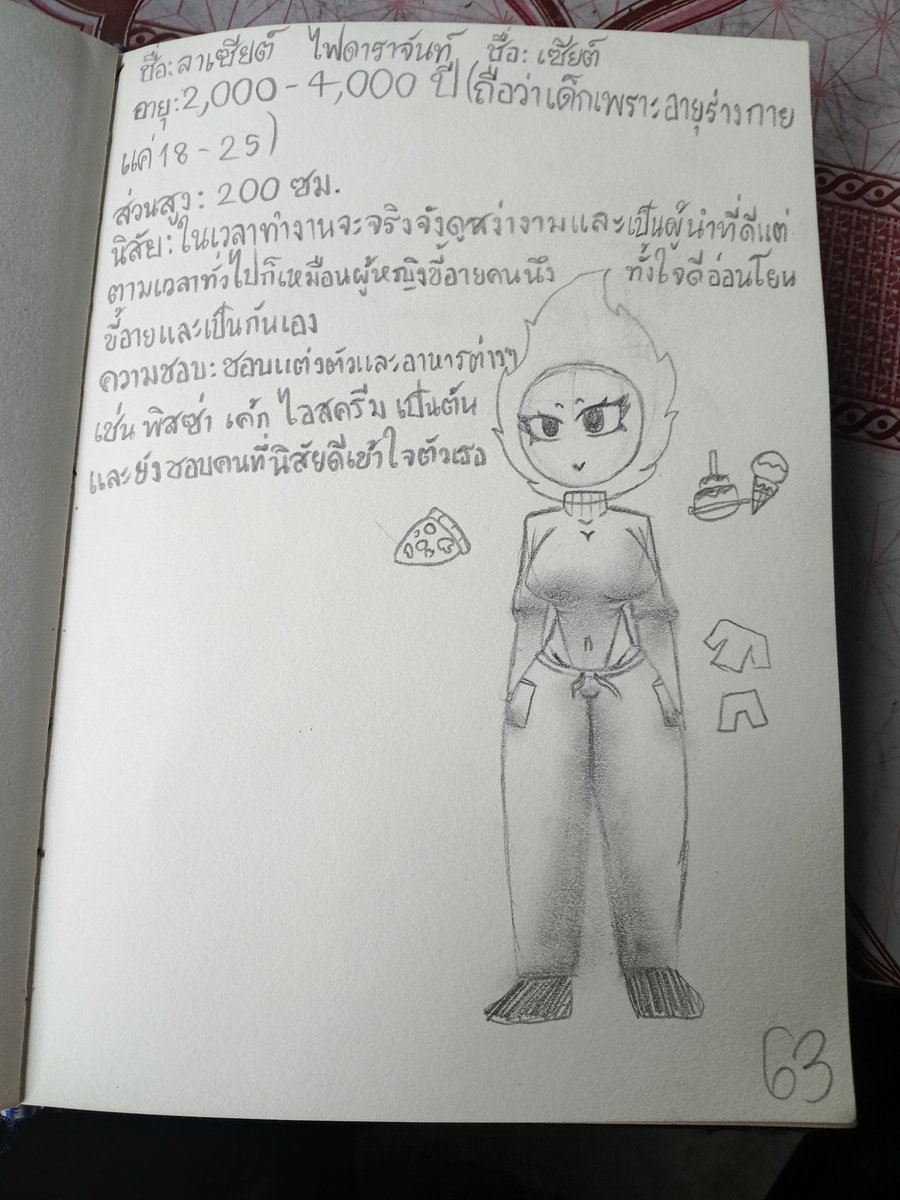 ชื่อ:ลาเซียต์ ไฟดาราจันท์ ชื่อ: เซียต์
อายุ:2,000 - 4,000 ปี (ถือว่าเด็กเพราะอายุร่างกาย
แค่ 18 - 25)
ส่วนสูง: 200 ซม.
นิสัย:ในเวลาทำงานจะจริงจังดูสง่างามและเป็นผู้นำที่ดีแต่
ตามเวลาทั่วไปก็เหมือนผู้หญิงขี้อายคนนึง ทั้งใจดีอ่อนโยน
ขี้อายและเป็นกันเอง
ความชอบ: ชอบแต่งตัวและอาหารต่างๆ
เช่น พิสซ่า เค้ก ไอสครีม เป็นต้น
และยังชอบคนที่นิสัยดีเข้าใจตัวเธอ
63